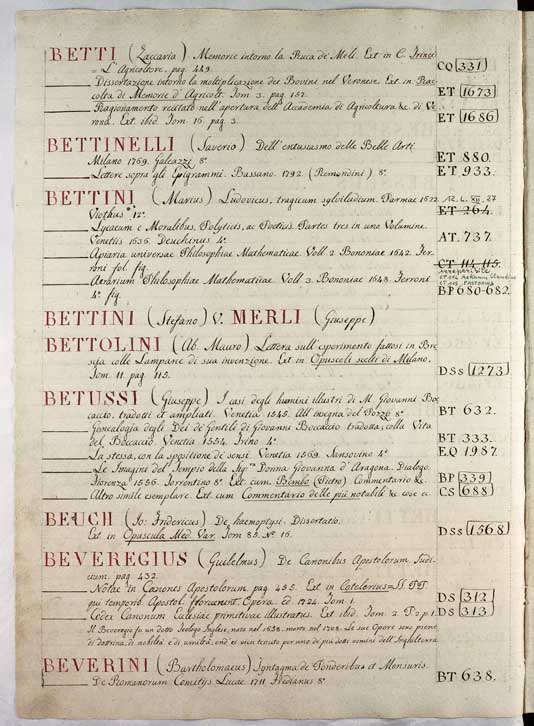 BETTI (Zaccaria) Memorie intorno la Ruca de' Meli. Ext in C. Trinci
= L'Agricoltore. pag. 449. CQ 331
Dissertazione intorno la moltiplicazione dei Bovini nel Veronese. Ext. in Rac
colta di Memorie d'Agricolt. Tom. 3. pag. 187. ET 1673
Ragionamento recitato nell'apertura dell'Accademia di Agricoltura &c. di Ve
rona. Ext. ibid. Tom. 16. pag. 3. ET 1686
BETTINELLI (Saverio) Dell'entusiasmo delle Belle Arti.
Milano 1769. Galeazzi 8° ET 880.
Lettere sopra gli Epigrammi. Bassano. 1792. (Remondini) 8° ET. 933.
BETTINI (Marius) Ludovicus, tragicum sylviludium. Parmae 1622. 12. L. XII. 27
Viothus 12° ET 264.
Lycaeum e Moralibus, Polyticis, ac Poeticis. Partes tres in uno Volumine.
Venetiis 1636. Deuchinus 4° AT. 737.
Apiaria universae Philosophiae Mathematicae Voll. 2 Bononiae 1642. Fer
roni fol. fig. CT 114-115.
irreperibile
Aerarium Philosophiae Mathematicae Voll. 3. Bononiae 1648. Ferroni
4° fig. BP 680-682.
BETTINI (Stefano) V. MERLI (Giuseppe)
BETTOLINI (Ab. Mauro) Lettera sull'esperimento fattosi in Bre
scia colle Lampane di sua invenzione. Ext. in Opuscoli scelti di Milano.
Tom. 11. pag. 115. DSs 1273
BETUSSI (Giuseppe) I casi degli huomini illustri di M. Giovanni Boc
caccio, tradotti et ampliati. Venetia 1545. All'insegna del Pozzo 8° BT 632.
Genealogia degli Dei de' Gentili di Giovanni Boccaccio tradotta; colla Vita
del Boccaccio. Venetia 1554. 4° BT 333.
La stessa, con la sposizione de' sensi. Venetia 1569. Sansovino 4° EQ 1987.
Le Imagini del Tempio della Sig.ra Donna Giovanna d'Aragona. Dialogo.
Fiorenza 1556. Torrentino 8° Ext. cum. Bembo (Pietro) Commentario &c. BP 339
Altro simile esemplare. Ext. cum Commentario delle più notabili &c. cose &. CS 688
BEUCH (Jo: Fridericus) De haemoptysi. Dissertatio.
Ext. in Opuscula Med. Var. Tom. 85. N° 16. DSs 1568
BEVEREGIUS (Guilelmus) De Canonibus Apostolorum Judi
cium. pag. 432.
Notae in Canones Apostolorum. pag. 455. Ext. in Cotelerius = SS. PP.
qui temporib. Apostol. floruerunt, Opera. ed. 1724. Tom. 1. DS 312
Codex Canonum Ecclesiae primitivae illustratus. Ext. ibid. Tom. 2. P. 2. p. 1. DS 313
Il Beveregio fu un dotto Teologo Inglese, nato nel 1638. morto nel 1708. Le sue Opere sono piene
di dottrina, di nobiltà e di umiltà, ond'ei vien tenuto per uno de' più dotti uomini dell'Inghilterra
BEVERINI (Bartholomaeus) Syntagma de Ponderibus et Mensuris.
De Romanorum Comitijs Lucae 1711. Frediani 8° BT 638.